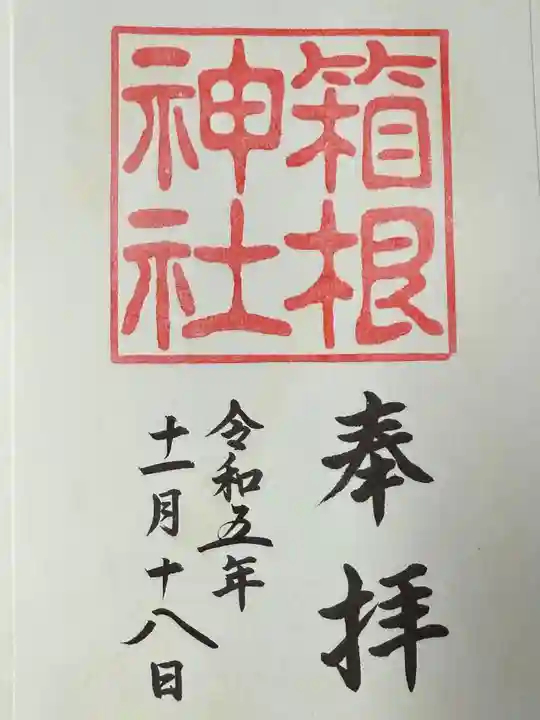 箱根
神社
奉拝
令和五年
十一月十八日